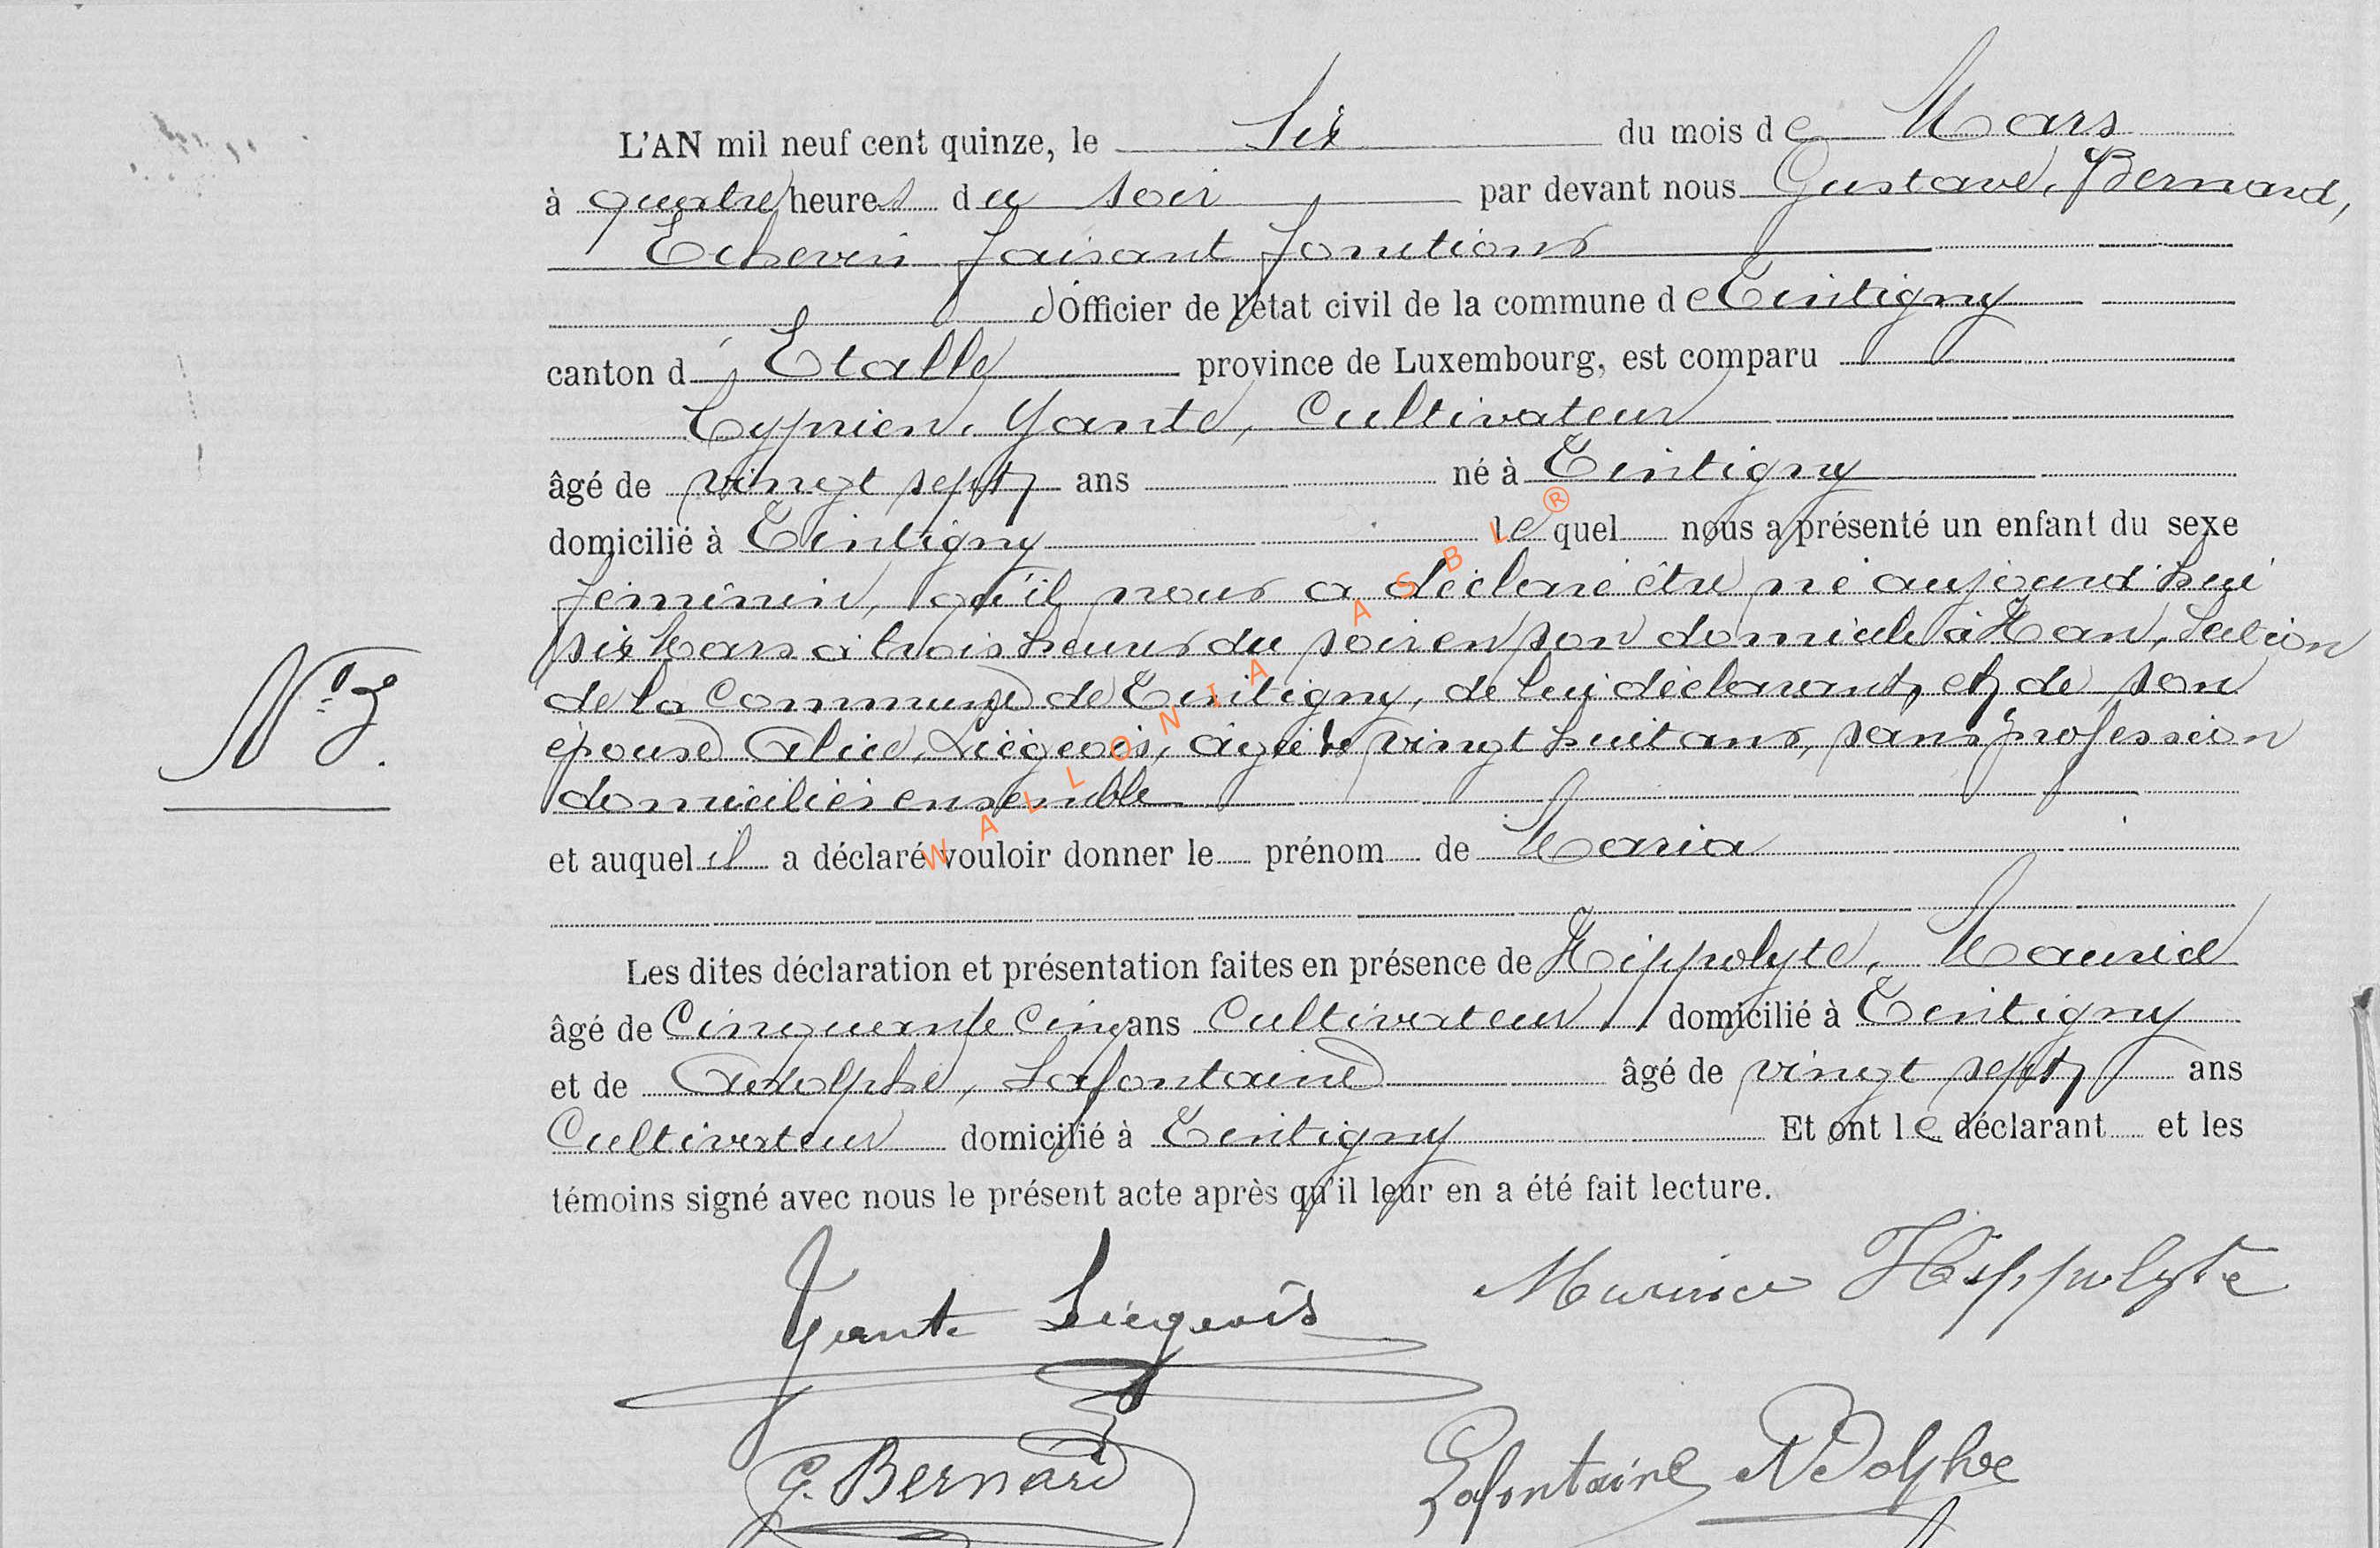 L'AN mil neuf cent quinze, le Six du mois de Mars
à quatre heures du soir par devant nous Gustave, Bernard,
Echevin faisant fonctions
d'Officier de l'état civil de la commune de Tintigny
canton d' Etalle province de Luxembourg, est comparu
Cyprien, Yante, Cultivateur
âgé de vingt sept ans né à Tintigny
domicilié à Tintigny lequel nous a présenté un enfant du sexe
féminin, qu'il nous a déclaré être né aujourd'hui
six Mars à trois heures du soir en son domicile à Han, Section
de la Commune de Tintigny, de lui déclarant, et de son
épouse Alice, Liégeois, âgée de vingt huit ans, sans profession
domiciliés ensemble
N° 3.
et auquel il a déclaré vouloir donner le prénom de Maria
Les dites déclaration et présentation faites en présence de Hippolyte, Maurice
âgé de Cinquante Cinq ans Cultivateur domicilié à Tintigny
et de Adolphe, Lafontaine âgé de vingt sept ans
Cultivateur domicilié à Tintigny Et ont le déclarant et les
témoins signé avec nous le présent acte après qu'il leur en a été fait lecture.
Yante Liégeois Maurice Hippolyte
G. Bernard Lafontaine Adolphe
WALLONIA ASBL ®